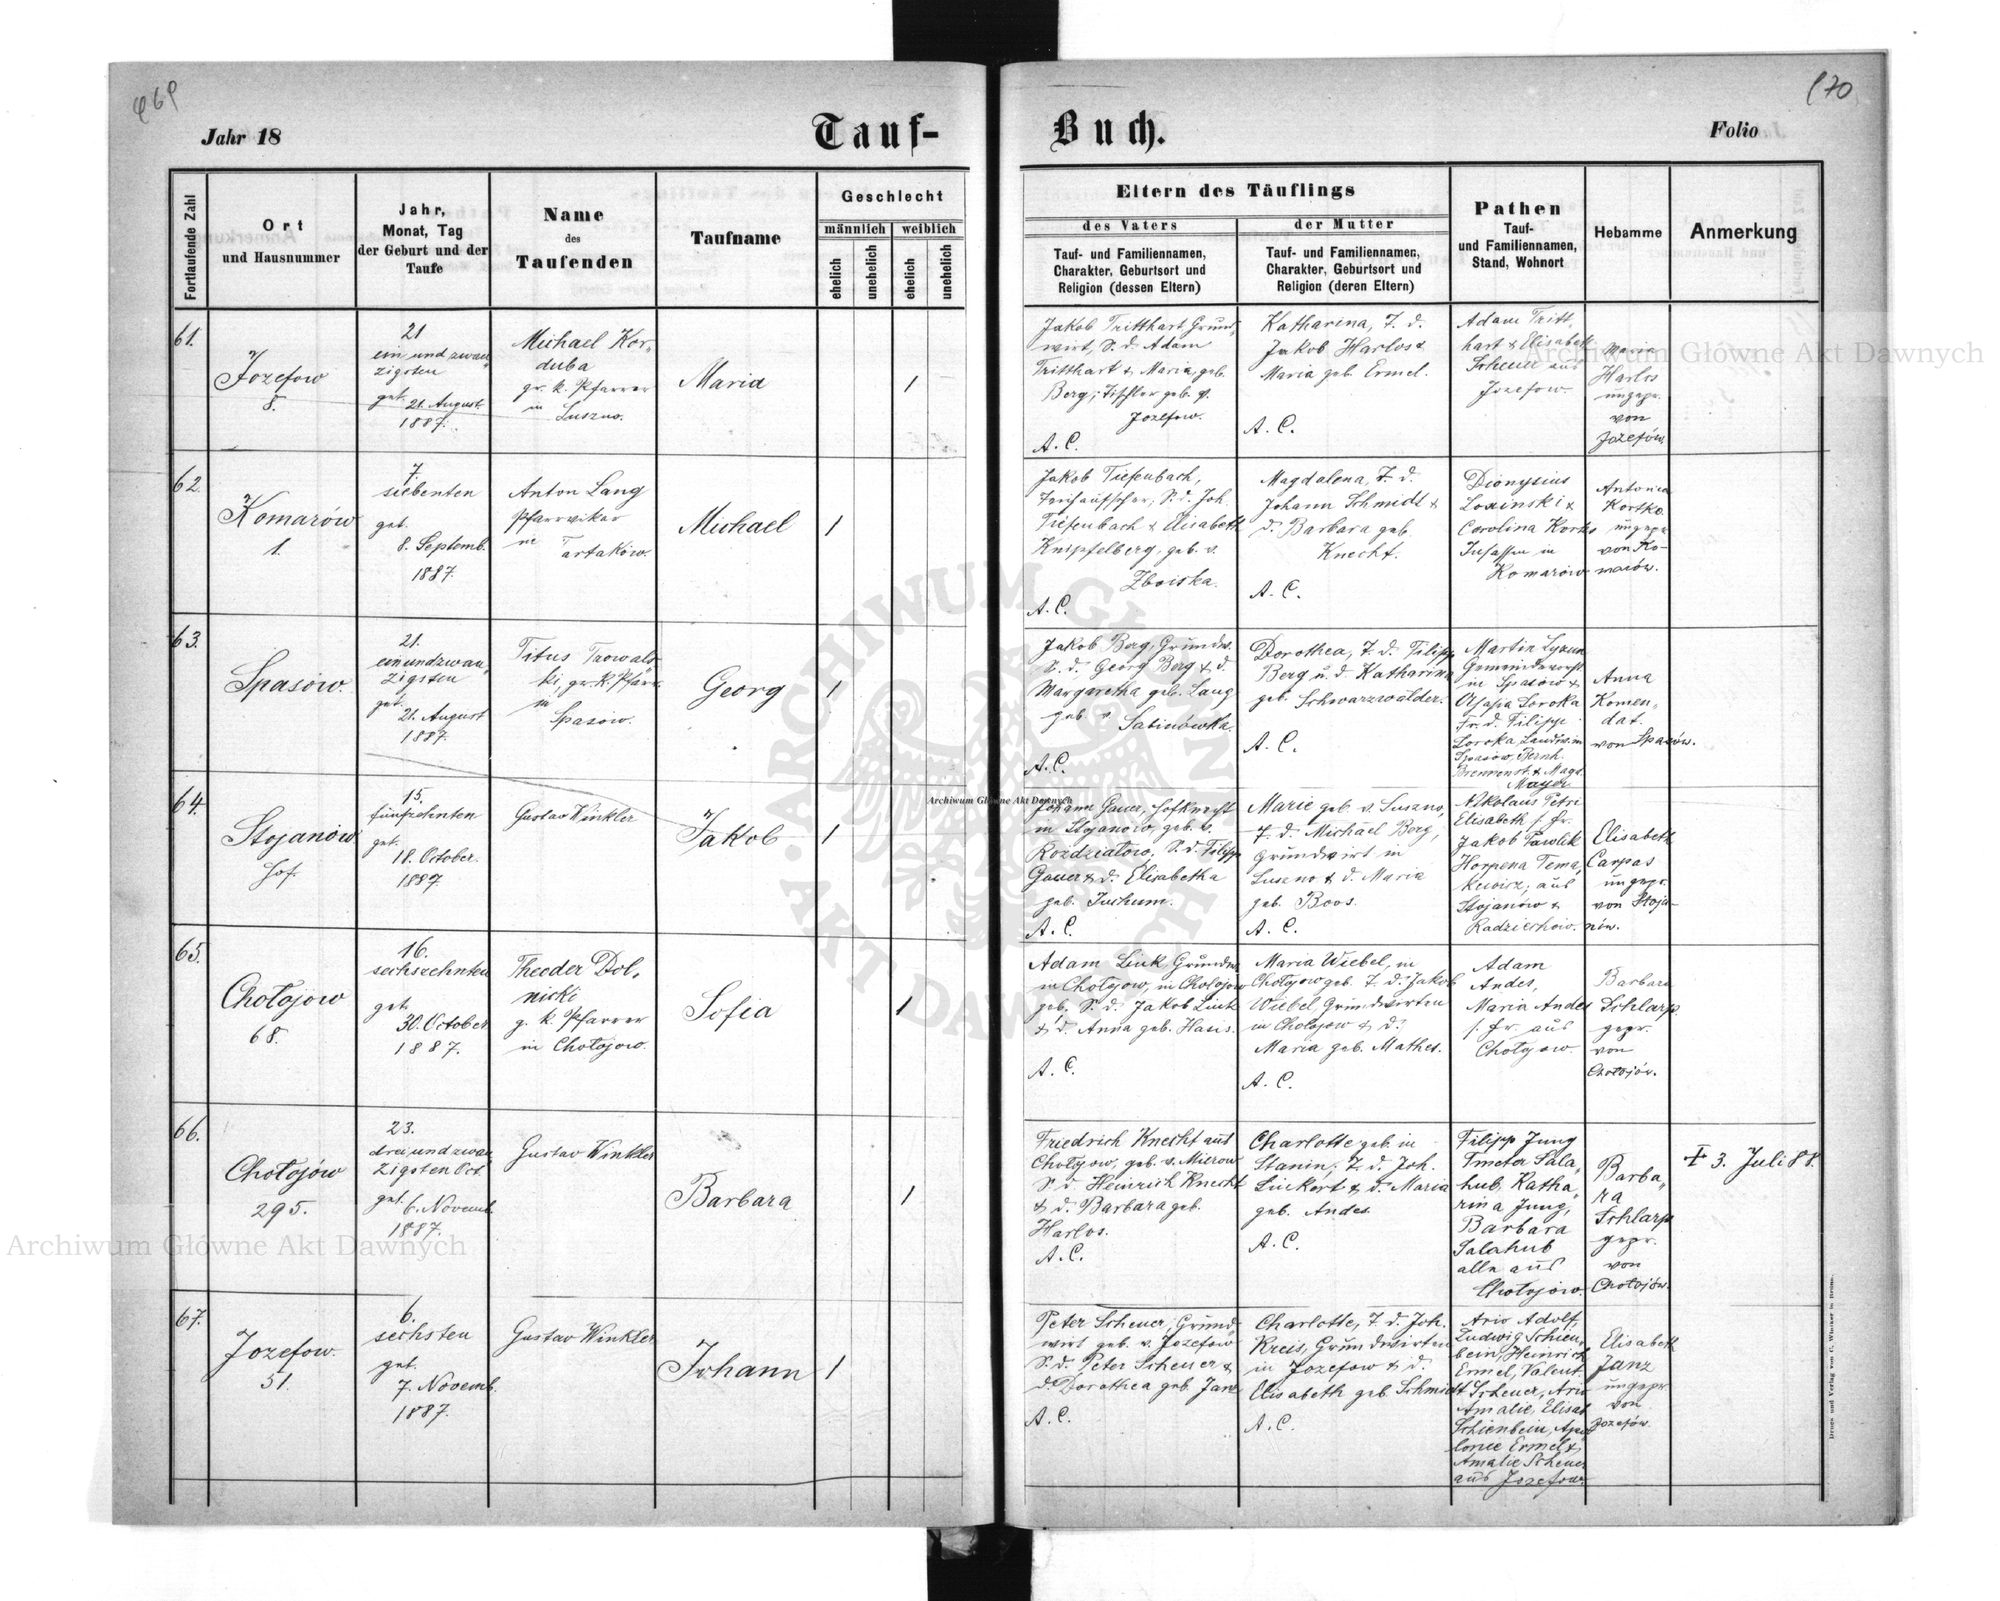 469
170
Jahr 18
Tauf-
Buch.
Folio
Fortlaufende Zahl
Ort
und Hausnummer
Jahr,
Monat, Tag
der Geburt und der
Taufe
Name
des
Taufenden
Taufname
Geschlecht
männlich
weiblich
ehelich
unehelich
ehelich
unehelich
Eltern des Täuflings
des Vaters
Tauf- und Familiennamen,
Charakter, Geburtsort und
Religion (dessen Eltern)
der Mutter
Tauf- und Familiennamen,
Charakter, Geburtsort und
Religion (deren Eltern)
Pathen
Tauf-
und Familiennamen,
Stand, Wohnort
Hebamme
Anmerkung
61.
Jozefow
8.
21
ein und zwan
zigsten
get.
21. August.
1887.
Michael Kor-
duba
gr. k. Pfarrer
in Suszno.
Maria
1
Jakob Tritthart Grund-
wirt, S. d. Adam
Tritthart & Maria, geb.
Berg; Tischler geb. v.
Jozefow.
A. C.
Katharina, T. d.
Jakob Harlos &
Maria geb. Ermel.
A. C.
Adam Tritt-
hart & Elisabeth
Scheuer aus
Jozefow.
Maria
Harlos
ungepr.
von
Jozefów
62.
Komarów
1.
7.
siebenten
get.
8. Septemb.
1887.
Anton Lang
Pfarrvikar
in
Tartaków.
Michael
1
Jakob Tiefenbach,
S. d. Joh.
Tiefenbach & Elisabeth
Knipfelberg, geb. v.
Zboiska.
A. C.
Magdalena, T. d.
Johann Schmidt &
d. Barbara geb.
Knecht.
A. C.
Dionysius
Losinski &
Carolina Kortko
Insassen in
Komarów
Antonia
Kortko
ungepr.
von Ko-
marów.
63.
Spasów.
21.
einundzwan
zigsten
get.
21. August
1887.
Titus Trowals
ki, gr. k. Pfarr.
in
Spasow.
Georg
1
Jakob Berg, Grundw.
S. d. Georg Berg & d.
Margaretha geb. Lang
geb. v. Sabinówka.
A. C.
Dorothea, T. d. Filipp
Berg u. d. Katharina
geb. Schwarzwälder.
A. C.
Martin Lysun
Gemeindevorst
in Spasów &
Loroka
Fr. d. Filipp
Loroka, Landw. in
Spasow, Bernh.
& Magd.
Mayer
Anna
Komen-
dat.
von Spasów.
64.
Stojanów
Hof.
15.
fünfzehnten
get.
18. October.
1887.
Gustav Winkler
Jakob
1
Johann Gauer, Hofknecht
in Stojanow, geb. v.
Rozdzialow, S. d. Filipp
Gauer & d. Elisabetha
geb. Juchum.
A. C.
Marie geb. v. Suszno,
T. d. Michael Berg,
Grundwirt in
Suszno & d. Maria
geb. Boos.
A. C.
Nikolaus Petri
Elisabeth s. Fr.
Jakob Pawlik
Horpena Tema,
kewicz, aus
Stojanów &
Radziechow.
Elisabeth
Carpas
ungepr.
von Stoja-
nów.
65.
Chołojow
68.
16.
sechszehnten
get.
30. October
1887.
Theodor Dol-
nicki
g. k. Pfarrer
in Chołojow.
Sofia
1
Adam Link, Grundw.
in Chołojow, in Chołojow
geb. S. d. Jakob Link
& d. Anna geb. Hasis.
A. C.
Maria Wiebel, in
Chołojow geb. T. d. Jakob
Wiebel Grundwirten
in Chołojow & d.
Maria geb. Mathes.
A. C.
Adam
Andes,
Maria Andes
s. Fr. aus
Chołojow.
Barbara
Schlarp
gepr.
von
Chołojów.
66.
Chołojów
295.
23.
dreiundzwan
zigsten Oct.
get.
6. Novemb.
1887.
Gustav Winkler
Barbara
1
Friedrich Knecht aus
Chołojow, geb. v. Mierow
S. d. Heinrich Knecht
& d. Barbara geb.
Harlos.
A. C.
Charlotte geb. in
Stanin, T. d. Joh.
Linkert & d. Maria
geb. Andes.
A. C.
Filipp Jung
Tmeter Sala-
hub, Katha-
rina Jung,
Barbara
Salahub
alle aus
Chołojów
Barba-
ra
Schlarp
gepr.
von
Chołojów.
† 3. Juli 88.
67.
Jozefow.
51.
6.
sechsten
get.
7. Novemb.
1887.
Gustav Winkler
Johann
1
Peter Scheuer, Grund-
wirt geb. v. Jozefow
S. d. Peter Scheuer &
d. Dorothea geb. Janz
A. C.
Charlotte, T. d. Joh.
Kreis, Grundwirten
in Jozefow & d.
Elisabeth geb. Schmidt
A. C.
Ario Adolf,
Ludwig Schien-
bein, Heinrich
Ermel, Valent.
Scheuer, Ario
Amalie, Elisab.
Schienbein, Apo-
lonie Ermel &
Amalie Scheuer
aus Jozefow.
Elisabeth
Janz
ungepr.
von
Jozefów.
Druck und Verlag von C. Winiker in Brünn.
Archiwum Główne Akt Dawnych
Archiwum Główne Akt Dawnych
Archiwum Główne Akt Dawnych
ARCHIWUM GŁÓWNE AKT DAWNYCH